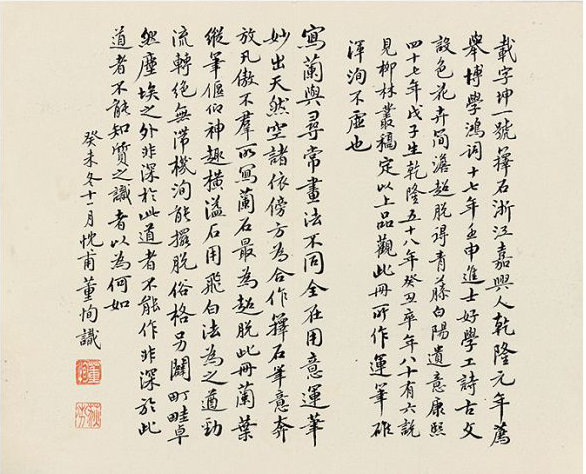 載字坤一號擇石浙江嘉興人乾隆元年薦
舉博學鴻词十七年壬申進士好學工詩古文
設色花卉简澹超脱得青藤白陽遺意康熙
四十七年戊子生乾隆五十八年癸丑卒年八十有六說
見柳林叢稿定以上品觀此冊所作運筆雄
渾洵不虛也
寫蘭與尋常畫法不同全在用意運筆
妙出天然空諸依傍方為合作擇石筆意奔
放兀傲不羣所寫蘭石最為超脱此冊蘭葉
縱筆偃仰神趣橫溢石用飛白法為之遒勁
流轉絕無滯機洵能擺脱俗格另闢町畦卓
然塵埃之外非深於此道者不能作非深於此
道者不能知質之識者以為何如
癸未冬十一月忱甫董恂識